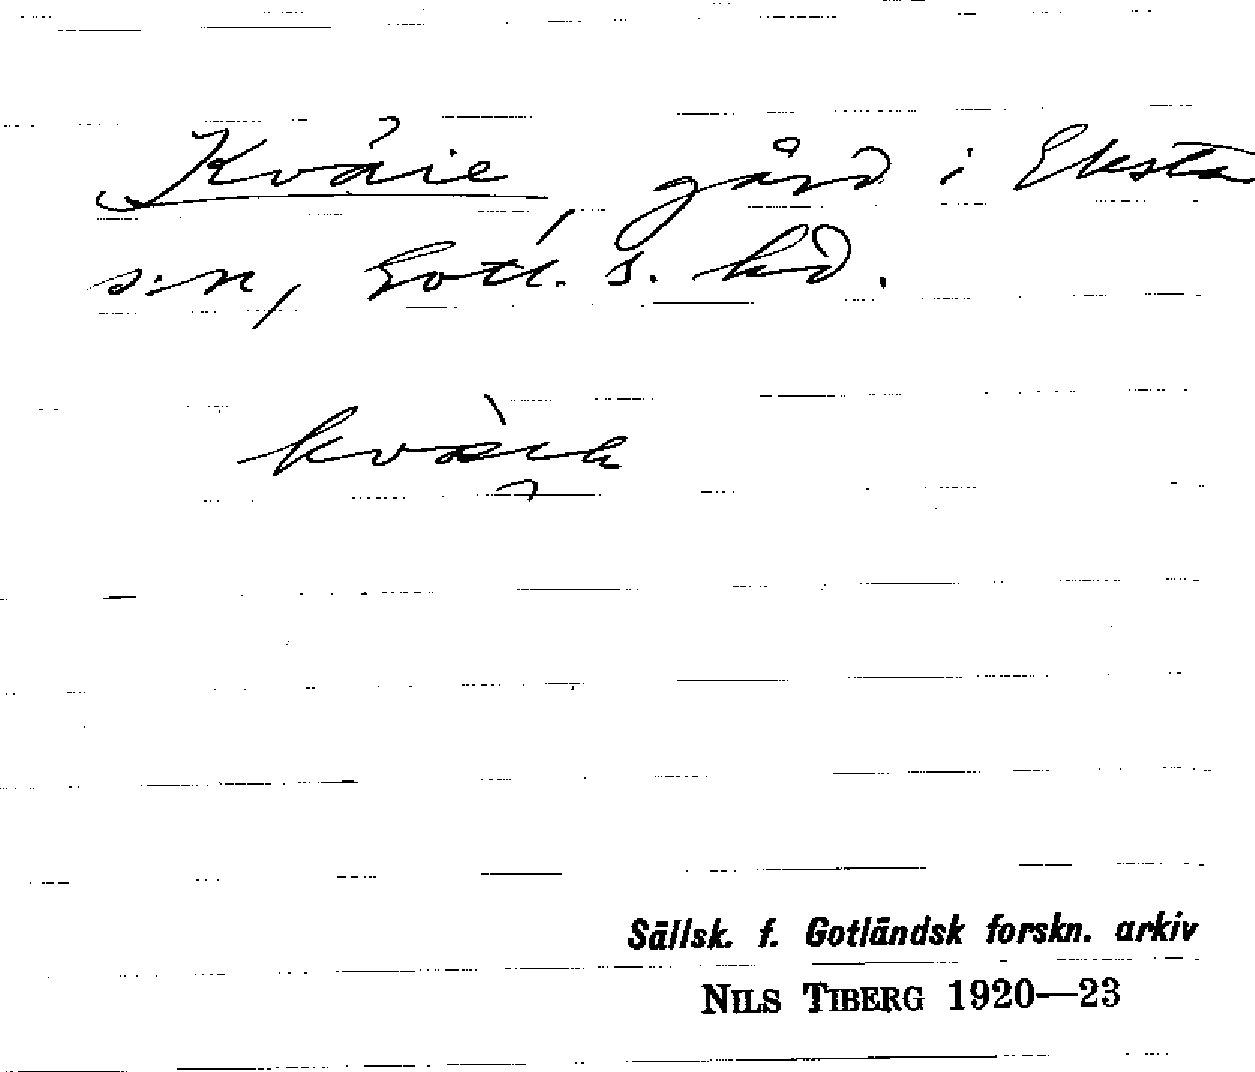 Kváie gård i Eksta
s:n, Gotl. s. hd.
Sällsk. f. Gotländsk forskn. arkiv
NILS TIBERG 1920—23